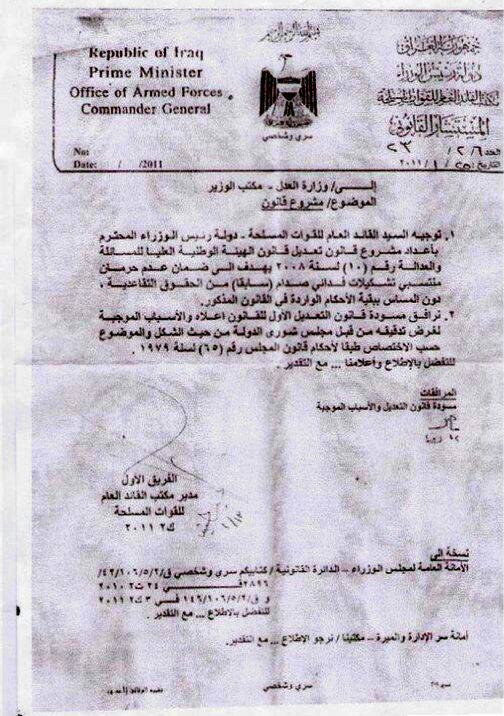 Republic of Iraq
Prime Minister
Office of Armed Forces
Commander General
No:
Date: / /2011
بسم الله الرحمن الرحيم
جمهورية العراق
دولة رئيس الوزراء
مكتب القائد العام للقوات المسلحة
المستشار القانوني
العدد ٢/٦/ ٢٣
التاريخ: / ١ / ٢٠١١
سري وشخصي
إلـــى/ وزارة العدل - مكتب الوزير
الموضوع/ مشروع قانون
١. توجيه السيد القائد العام للقوات المسلحة - دولة رئيس الوزراء المحترم
بأعداد مشروع قانون تعديل قانون الهيئة الوطنية العليا للمسائلة
والعدالة رقم (١٠) لسنة ٢٠٠٨ يهدف الى ضمان عدم حرمان
منتسبي تشكيلات فدائي صدام (سابقا) من الحقوق التقاعدية ،
دون المساس ببقية الأحكام الواردة في القانون المذكور.
٢. نرافق مسودة قانون التعديل الأول للقانون اعلاه والأسباب الموجبة
لغرض تدقيقه من قبل مجلس شورى الدولة من حيث الشكل والموضوع
حسب الاختصاص طبقا لأحكام قانون المجلس رقم (٦٥) لسنة ١٩٧٩ .
للتفضل بالإطلاع وأعلامنا ... مع التقدير .
المرافقات
مسودة قانون التعديل والأسباب الموجبة
الفريق الأول
مدير مكتب القائد العام
للقوات المسلحة
ك٢ ٢٠١١
نسخة الى
الأمانة العامة لمجلس الوزراء – الدائرة القانونية / كتابكم سري وشخصي ق/٤٢/١٠٦/٥/٢/
٢٨٩٦ فـــي ٢٤ ت٢ ٢٠١٠
و ق/١٤٦/١٠٦/٥/٢ فــي ٣ ك٢ ٢٠١١
للتفضل بالاطلاع ... مع التقدير .
أمانة سر الإدارة والميرة – مكتبنا / نرجو الإطلاع ... مع التقدير.
سري وشخصي